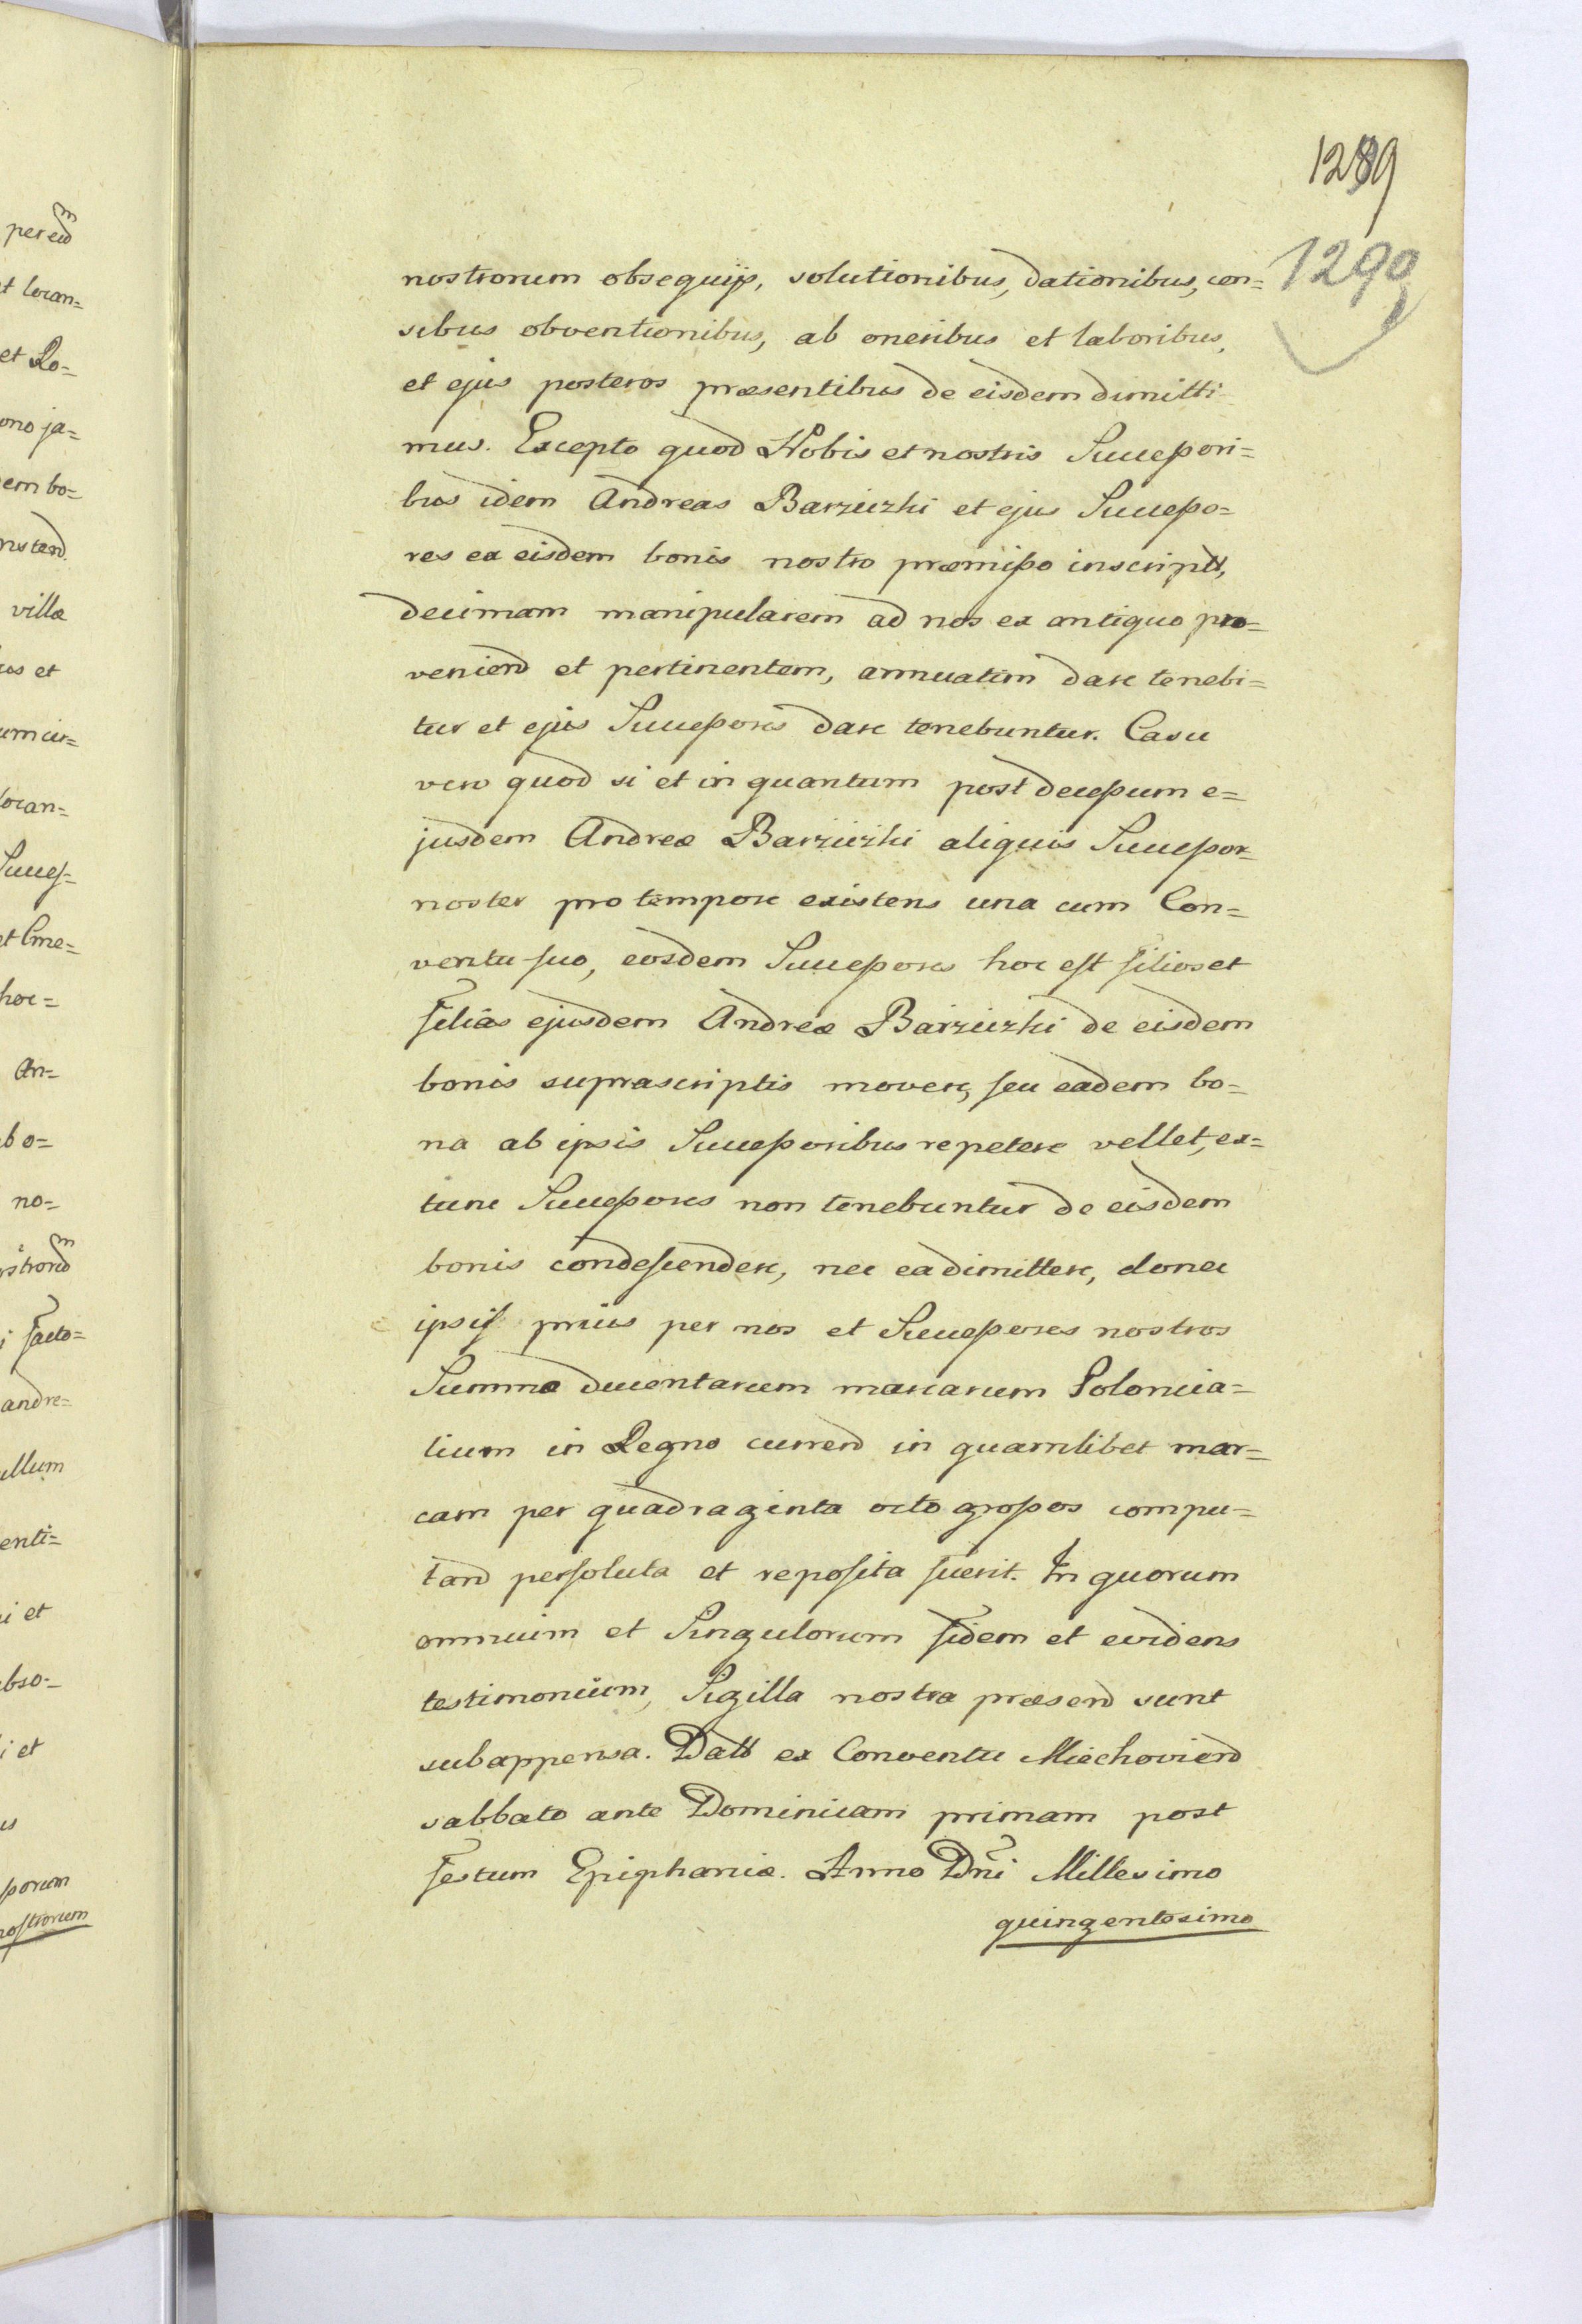 1289
1290
nostrorum obsequijs, solutionibus, dationibus, cen=
sibus obventionibus, ab oneribus et laboribus,
et ejus posteros præsentibus de eisdem dimitti-
mus. Excepto quod Nobis et nostris Succeßori=
bus idem Andreas Barziczki et ejus Succeßo=
res ex eisdem bonis nostro præmißo inscriptt,
decimam manipularem ad nos ex antiquo pro=
veniend et pertinentem, annuatim dare tenebi=
tur et ejus Succeßores dare tenebuntur. Casu
vero quod si et in quantum post deceßum e=
jusdem Andreæ Barziczki aliquis Succeßor
noster pro tempore existens una cum Con=
ventu suo, eosdem Succeßores hoc est filios et
filias ejusdem Andreæ Barziczki de eisdem
bonis suprascriptis movere, seu eadem bo=
na ab ipsis Succeßoribus repetere vellet, ex=
tunc Succeßores non tenebuntur de eisdem
bonis condescendere, nec ea dimittere, donec
ipsis prius per nos et Succeßores nostros
Summa ducentarum marcarum Polonica=
lium in Regno currend in quamlibet mar=
cam per quadraginta octo großos compu=
tand persoluta et reposita fuerit. In quorum
omnium et Singulorum fidem et evidens
testimonium, Sigilla nostra præsend sunt
subappensa. Datt ex Conventu Miechoviend
sabbato ante Dominicam primam post
festum Epiphaniæ. Anno Dni Millesimo
quingentesimo